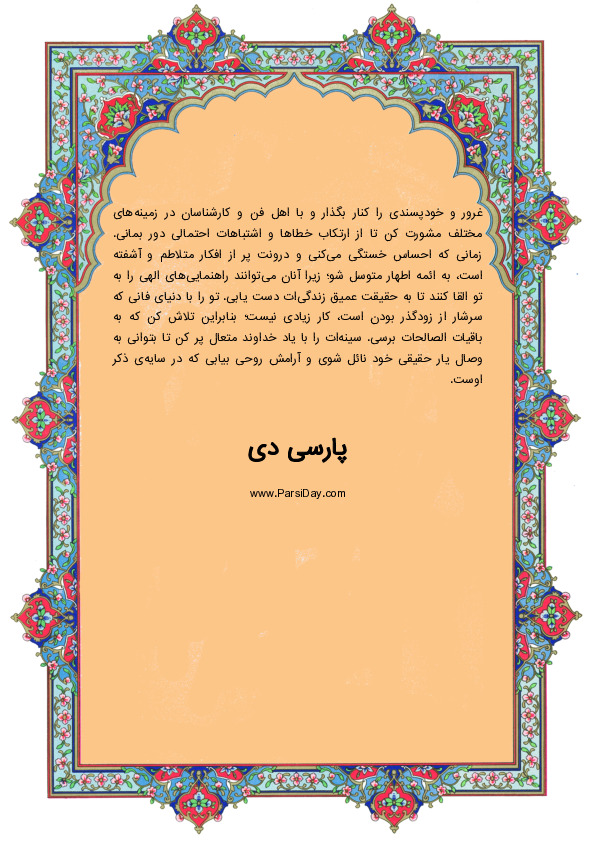 غرور و خودپسندی را کنار بگذار و با اهل فن و کارشناسان در زمینه‌های
مختلف مشورت کن تا از ارتکاب خطاها و اشتباهات احتمالی دور بمانی.
زمانی که احساس خستگی می‌کنی و درونت پر از افکار متلاطم و آشفته
است، به ائمه اطهار متوسل شو؛ زیرا آنان می‌توانند راهنمایی‌های الهی را به
تو القا کنند تا به حقیقت عمیق زندگی‌ات دست یابی. تو را با دنیای فانی که
سرشار از زودگذر بودن است، کار زیادی نیست؛ بنابراین تلاش کن که به
باقیات الصالحات برسی. سینه‌ات را با یاد خداوند متعال پر کن تا بتوانی به
وصال یار حقیقی خود نائل شوی و آرامش روحی بیابی که در سایه‌ی ذکر
اوست.
پارسی دی
www.ParsiDay.com